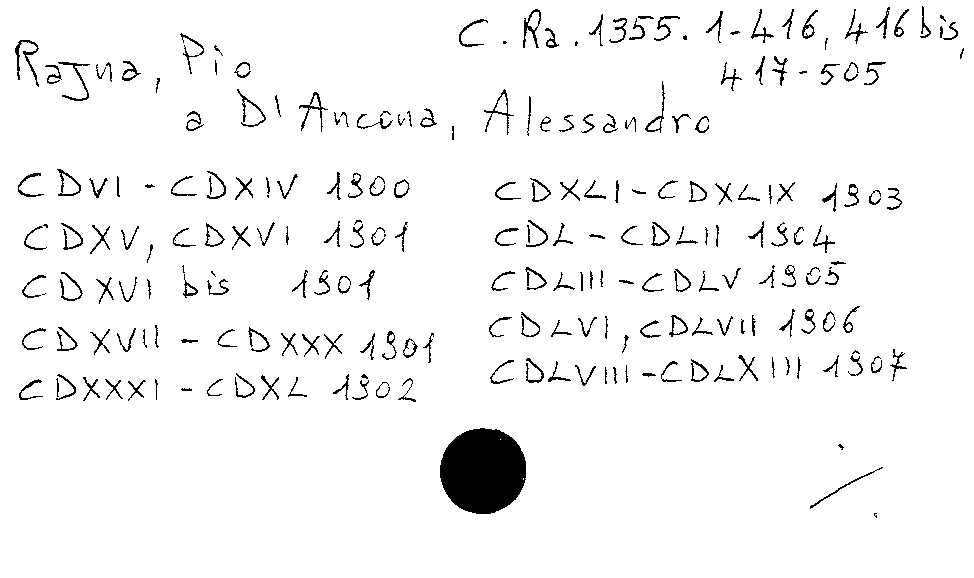 C. Ra. 1355. 1-416, 416 bis,
417-505
Rajna, Pio
a D'Ancona, Alessandro
CDVI - CDXIV 1900
CDXV, CDXVI 1901
CDXVI bis 1901
CDXVII - CDXXX 1901
CDXXXI - CDXL 1902
CDXLI - CDXLIX 1903
CDL - CDLII 1904
CDLIII - CDLV 1905
CDLVI, CDLVII 1906
CDLVIII - CDLXIII 1907
./.